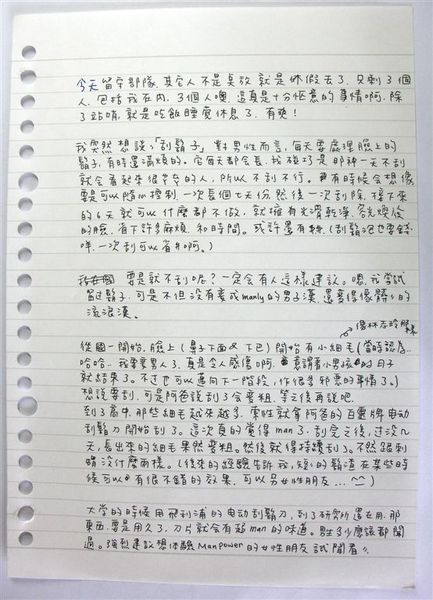 今天留守部隊,其它人不是莫放就是休假去了,只剩3個
人,包括我在內,3個人噢,這真是十分愜意的事情啊.除
了站哨,就是吃飯睡覺休息了,有爽!
我突然想談「刮鬍子」,對男性而言,每天要處理臉上的
鬍子,有時還滿煩的。它每天都會長,我碰巧是那種一天不刮
就會看起來很的人,所以不刮不行。有時候會想像
要是可以隨心控制,一次長個七天份,然後一次刮除,接下來
的6天就可以什麼都不做,就擁有光滑乾淨、容光煥發
的臉,省下許多麻煩和時間。或許還有(刮鬍泡也要錢
咩,一次刮可以省啊。)
要是就不刮呢?一定會有人這樣建議。嗯,我嘗試
留過鬍子,可是不但沒有變成manly的男子漢,還變得像髒的
流浪漢。
像林志玲
從國一開始,臉上(鼻子下面&下巴)開始有小細毛(當時認為..
哈哈..我要變男人了,真是令人感傷啊,意謂著小男孩的日子
就結束了。不過也可以邁向下一階段,作很多邪惡的事情了。)
想說要刮,可是阿爸說刮了會變粗,等之後再說吧.
到了高中,那些細毛越來越多,索性就拿阿爸的百靈牌电动
刮鬍刀開始刮了。這次真的覺得man了,刮完之後,过沒几
天,長出來的細毛果然變粗。然後就得持續刮了。不然跟刺
蝟沒什麼兩樣。(後來的經驗告訴我,短的鬍渣在某些時
候可以有很不錯的效果,可以另女性朋友...^^)
大学的時候用飛利浦的电动刮鬍刀,到了研究所還在用.那
東西,要是用久了,刀片就會有超man的味道。男生多少應該都聞
過。強烈建議想体驗Manpower的女性朋友試聞看。